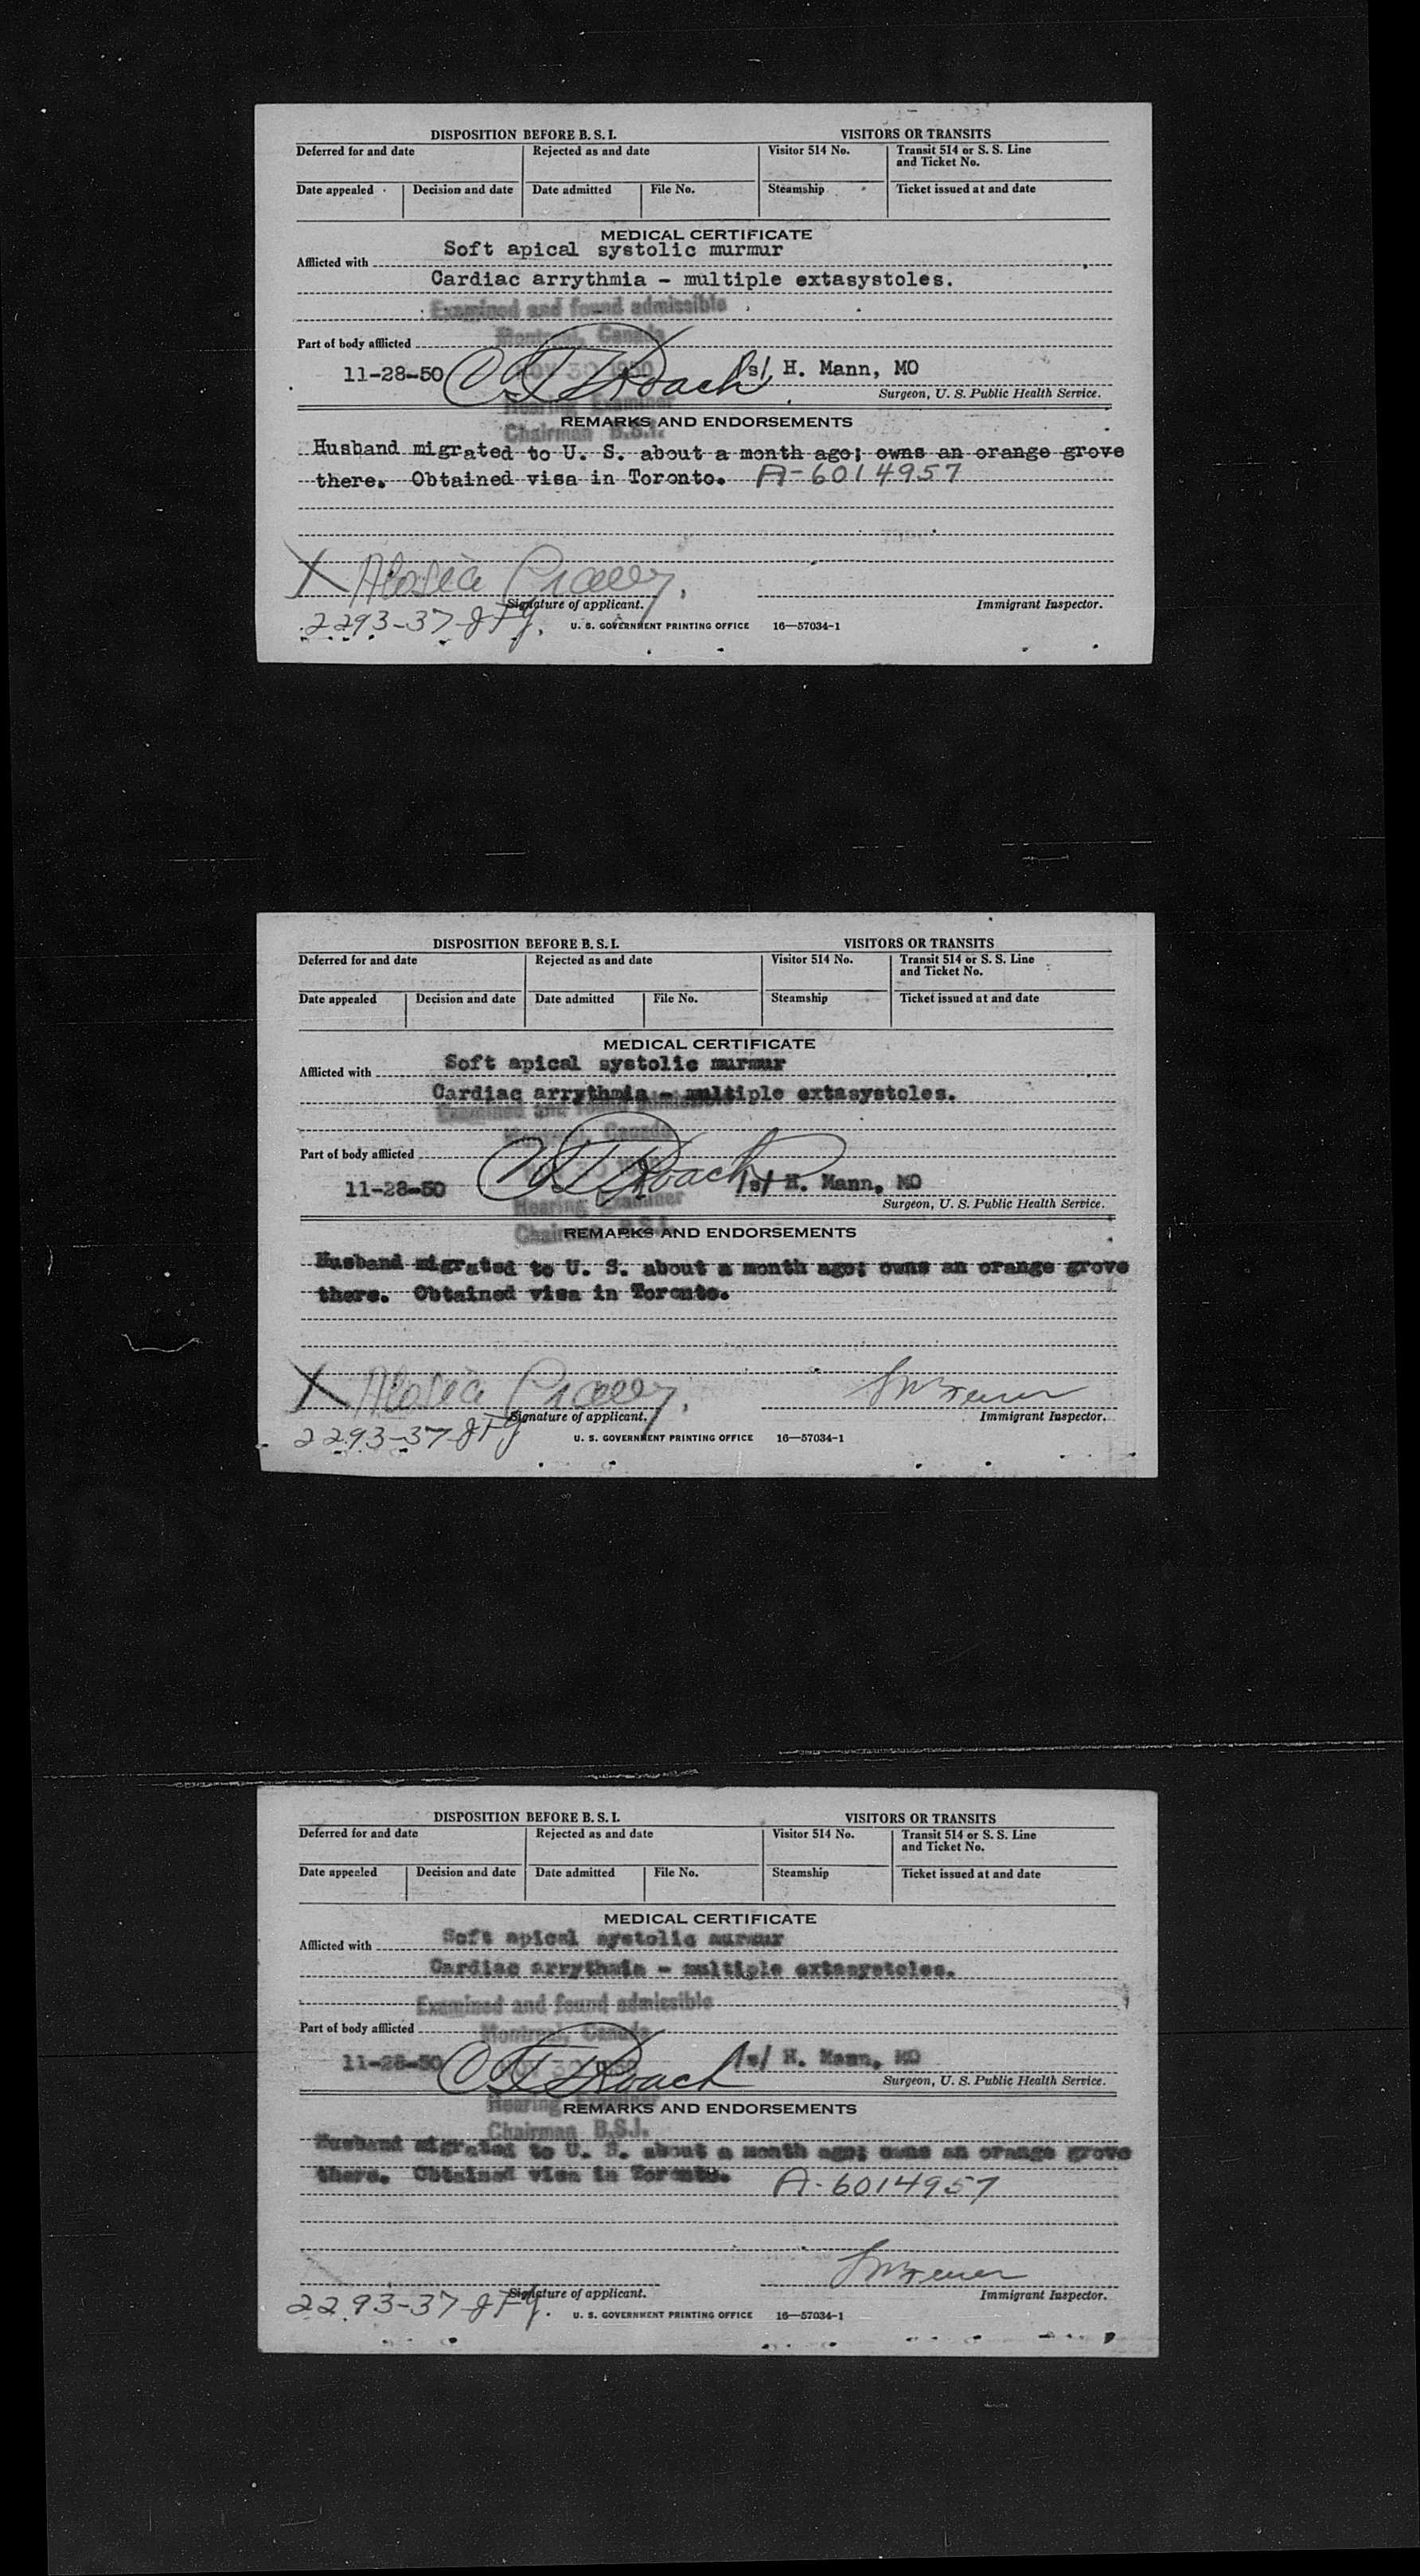 DISPOSITION BEFORE B. S. I. VISITORS OR TRANSITS
Deferred for and date Rejected as and date Visitor 514 No. Transit 514 or S. S. Line and Ticket No.
Date appealed Decision and date Date admitted File No. Steamship Ticket issued at and date
MEDICAL CERTIFICATE
Afflicted with Soft apical systolic murmur
Cardiac arrythmia - multiple extasystoles.
Examined and found admissible
Montreal, Canada
Part of body afflicted
NOV 30 1950
11-28-50 Roach /s/ H. Mann, MO
Surgeon, U. S. Public Health Service.
Hearing Examiner
Chairman B.S.I.
REMARKS AND ENDORSEMENTS
Husband migrated to U. S. about a month ago; owns an orange grove
there. Obtained visa in Toronto. A-6014957
X
Signature of applicant. Immigrant Inspector.
2293-37-
U. S. GOVERNMENT PRINTING OFFICE 16—57034-1
DISPOSITION BEFORE B. S. I. VISITORS OR TRANSITS
Deferred for and date Rejected as and date Visitor 514 No. Transit 514 or S. S. Line and Ticket No.
Date appealed Decision and date Date admitted File No. Steamship Ticket issued at and date
MEDICAL CERTIFICATE
Afflicted with Soft apical systolic murmur
Cardiac arrythmia - multiple extasystoles.
Examined and found admissible
Montreal, Canada
Part of body afflicted
11-28-50 Roach /s/ H. Mann, MO
Surgeon, U. S. Public Health Service.
Hearing Examiner
Chairman B.S.I.
REMARKS AND ENDORSEMENTS
Husband migrated to U. S. about a month ago; owns an orange grove
there. Obtained visa in Toronto.
X
Signature of applicant. Immigrant Inspector.
2293-37-
U. S. GOVERNMENT PRINTING OFFICE 16—57034-1
DISPOSITION BEFORE B. S. I. VISITORS OR TRANSITS
Deferred for and date Rejected as and date Visitor 514 No. Transit 514 or S. S. Line and Ticket No.
Date appealed Decision and date Date admitted File No. Steamship Ticket issued at and date
MEDICAL CERTIFICATE
Afflicted with Soft apical systolic murmur
Cardiac arrythmia - multiple extasystoles.
Examined and found admissible
Montreal, Canada
Part of body afflicted
11-28-50 Roach /s/ H. Mann, MO
Surgeon, U. S. Public Health Service.
Hearing Examiner
Chairman B.S.I.
REMARKS AND ENDORSEMENTS
Husband migrated to U. S. about a month ago; owns an orange grove
there. Obtained visa in Toronto. A-6014957
Signature of applicant. Immigrant Inspector.
2293-37-
U. S. GOVERNMENT PRINTING OFFICE 16—57034-1